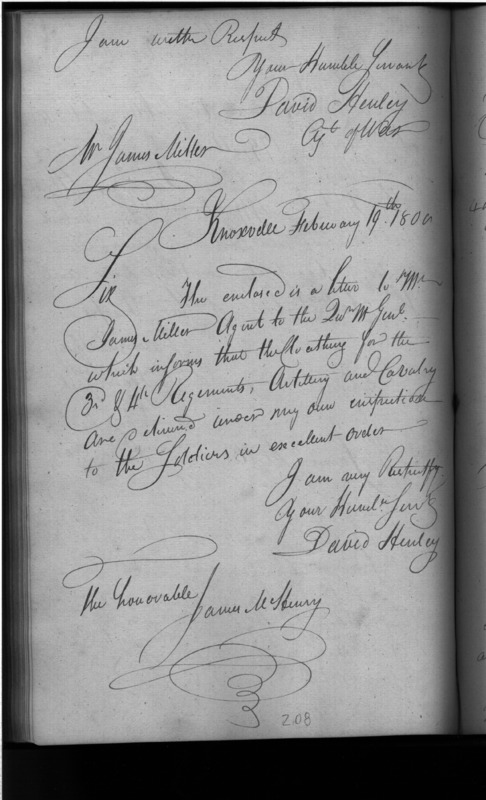 I am with Respect
Your Humble Servant
David Henley
Agt of War
Mr James Miller
Knoxville February 19th 1800
Sir
The enclosed is a letter to Mr
James Miller Agent to the Qur M Genl.
which informs that the Cloathing for the
3d & 4th Regements, Artillery and Cavalry
are delivered under my own instruction
to the Soldiers in excellent order
I am very Respectfy
Your Humle Servt
David Henley
The honorable
James McHenry
208